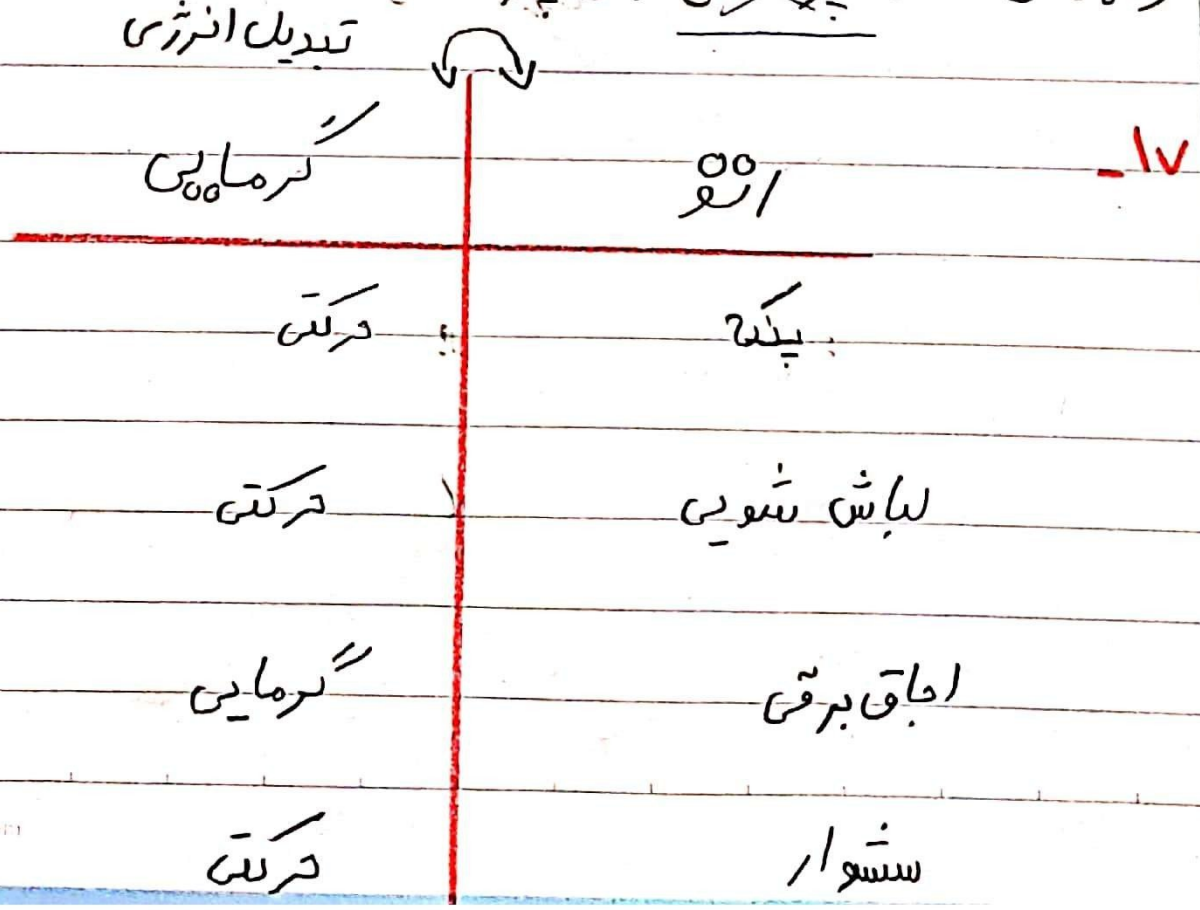 تبدیل انرژی
۱۷- اتو گرمایی
پنکه حرکتی
لباش شویی حرکتی
اجاق برقی گرمایی
سشوار حرکتی